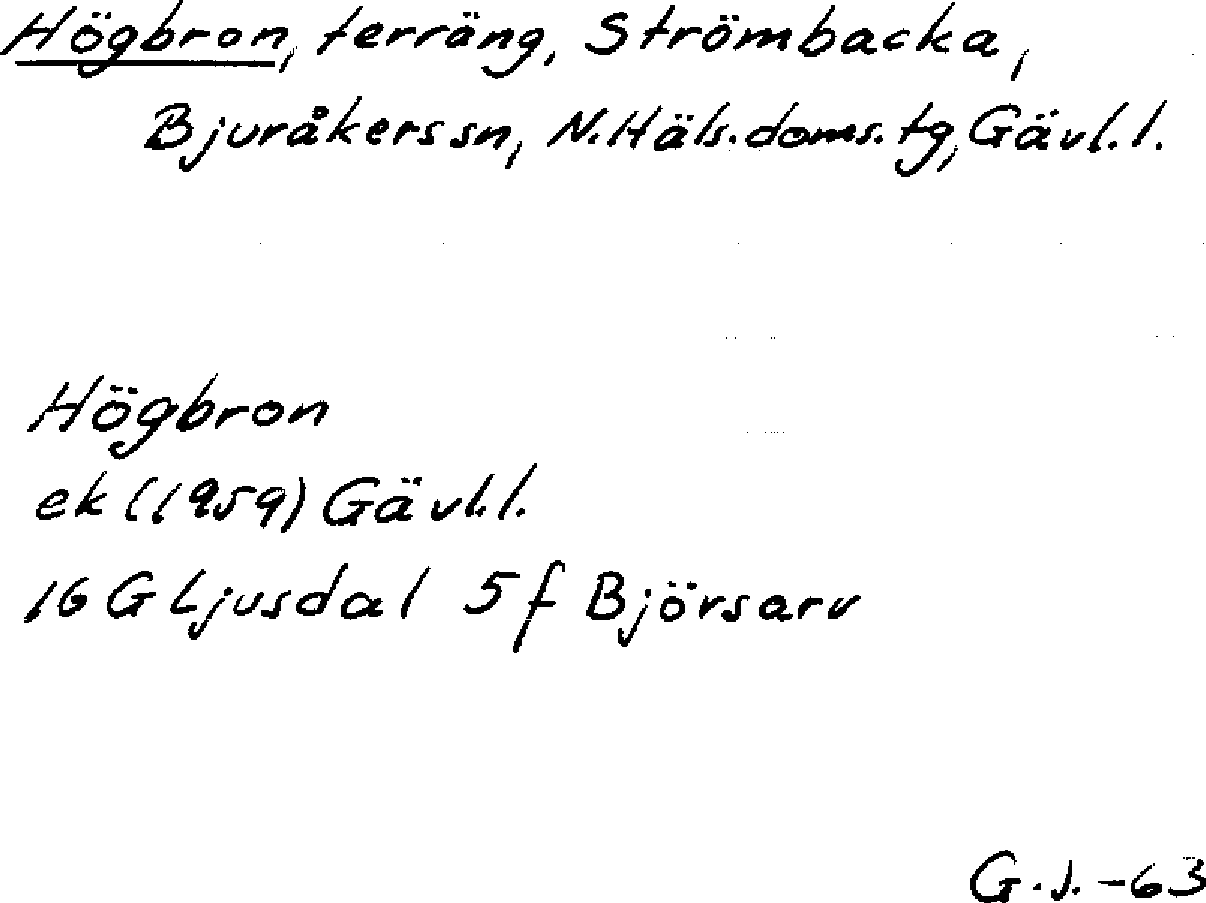 Högbron, terräng, Strömbacka,
Bjuråkers sn, N.Häls.doms.tg, Gävl.l.
Högbron
ek (1959) Gävl.l.
16 G Ljusdal 5 f Björsarv
G.J.-63